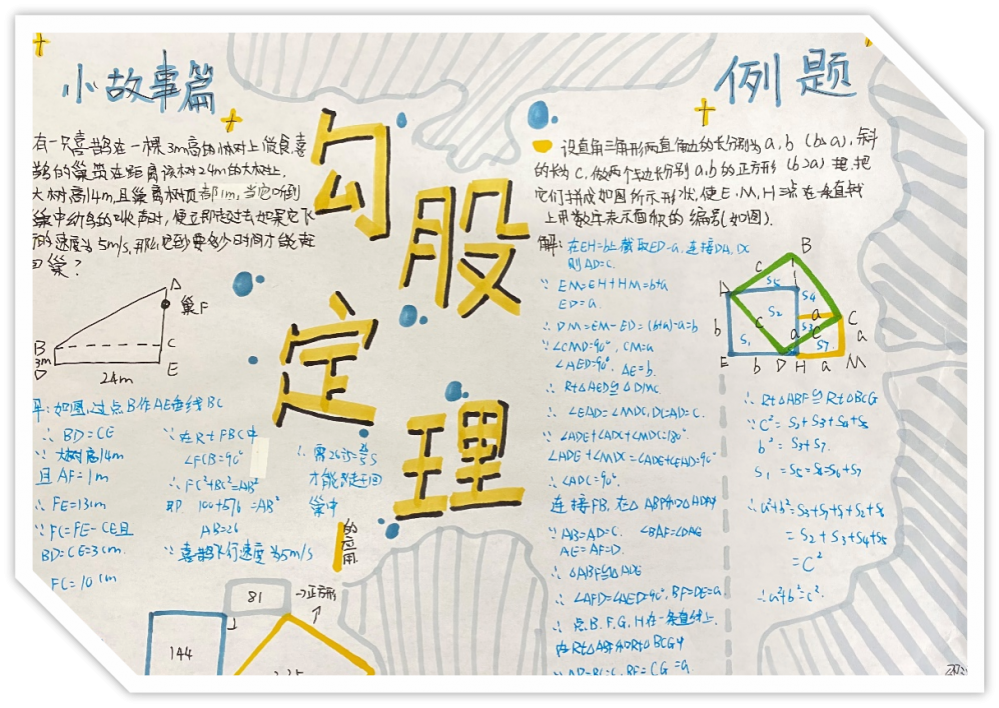 小故事篇
有一只喜鹊在一棵3m高的小树上觅食,喜
鹊的巢筑在距离该树24m的大树上,
大树高14m,且巢离树顶部1m,当它听到
巢中幼鸟的叫声时,便立即赶过去如果它飞
的速度为5m/s,那么它到要多少时间才能赶
回巢?
A
巢F
B
C
3m
D
24m
E
如图,过点B作AE垂线BC
∴ BD=CE
∵ 大树高14m
且AF=1m
∴ FE=13m
∵ FC=FE-CE且
BD=CE=3cm.
FC=10cm
∵ 在Rt FBC中
∠FCB=90°
∴ FC²+BC²=AB²
即 100+576=AB²
AB=26
∵ 喜鹊飞行速度为5m/s
∴ 需
才能赶回
巢中
勾股定理
的应用
81
→正方形
144
例题
设直角三角形两直角边的长分别为a,b (b>a),斜
的长为c,做两个边长分别a,b的正方形(b>a)把
它们拼成如图所示形状,使E、M、H三点在一条直线
上用数字表示面积的编号(如图).
解:在EH=b上截取ED=a,连接DA,DC
则AD=C.
∵ EM=EH+HM=b+a
ED=a
∴ DM=EM-ED=(b+a)-a=b
∵ ∠CMD=90°, CM=a
∠AED=90°. AE=b.
∴ Rt△AED≌△DMC
∴ ∠EAD=∠MDC,DC=AD=C.
∵ ∠ADE+∠ADC+∠MDC=180°
∠ADE+∠MDC=∠ADE+∠EAD=90°
∴ ∠ADC=90°.
连接FB. 在△ABF和△ADE中
∵ AB=AD=C. ∠BAF=∠DAE
∴ △ABF≌△ADE
∴ ∠AFD=∠AED=90°, BF=DE=a
∴ 点B、F、G、H在一条直线上.
在Rt△ABF和Rt△BCG中
∵ AB=BC=C, BF=CG=a
B
c
S5
S4
S2
S1
S3
S7
b
c
a
C
a
E
b
D
H
a
M
∴ Rt△ABF≌Rt△BCG
∵ C²=S2+S3+S4+S5
b²=
S1=S5=S4=S6+S7
∴ a²+b²=S3+S7+S1+S2+S6
=S2+S3+S4+S5
=C²
∴ a²+b²=c².